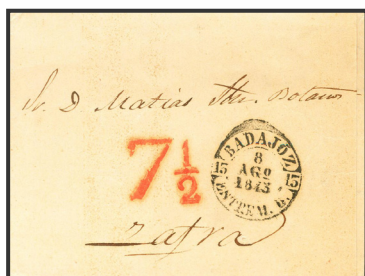 Sr. D Matias
7 1/2
BADAJOZ
8
AGO
1843
15 15
ESTREM. B.
Zafra